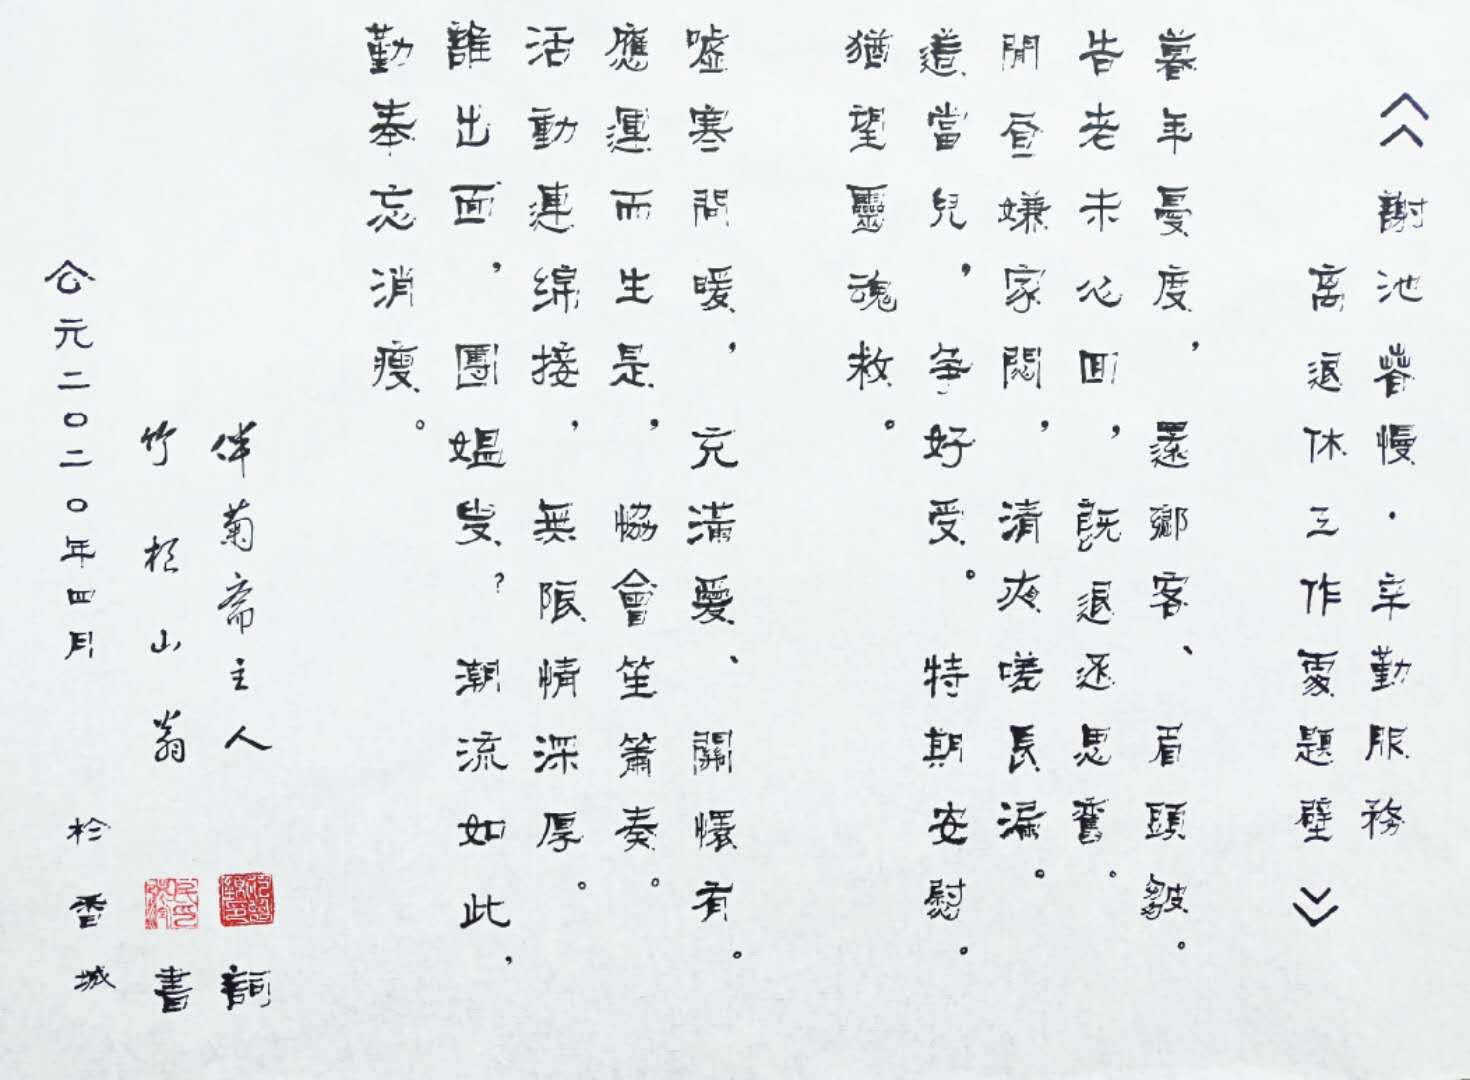 《謝池春慢·辛勤服務
離退休工作處題壁》
暮年憂度，還鄉客、眉頭皺。
告老未心囬，既退遂思奮。
閒昼嫌家悶，清夜嗟長漏。
道當兒，爭好受。特期安慰。
猶望靈魂救。
噓寒問暖，充滿愛、關懷有。
應運而生是，協會笙簫奏。
活動連綿接，無限情深厚。
誰出面，團媪叟？潮流如此，
勤奉忘消瘦。
伴菊斋主人 詞
竹松山翁 書
公元二〇二〇年四月 於香城